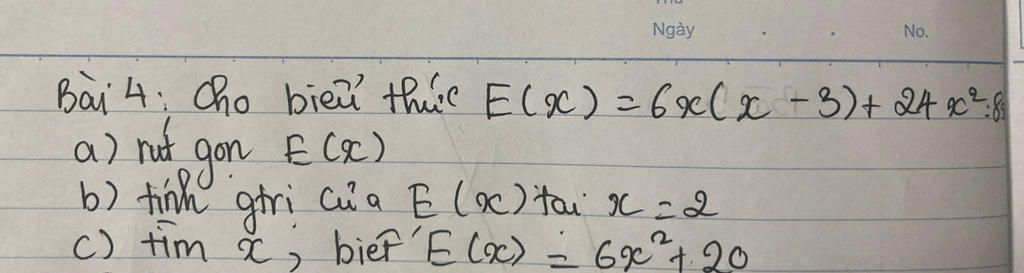 Thứ
Ngày . . No.
Bài 4: Cho biểu thức E(x) = 6x(x - 3) + 24x²:8
a) rút gọn E(x)
b) tính gtri của E(x) tại x = 2
c) tìm x, biết E(x) = 6x² + 20